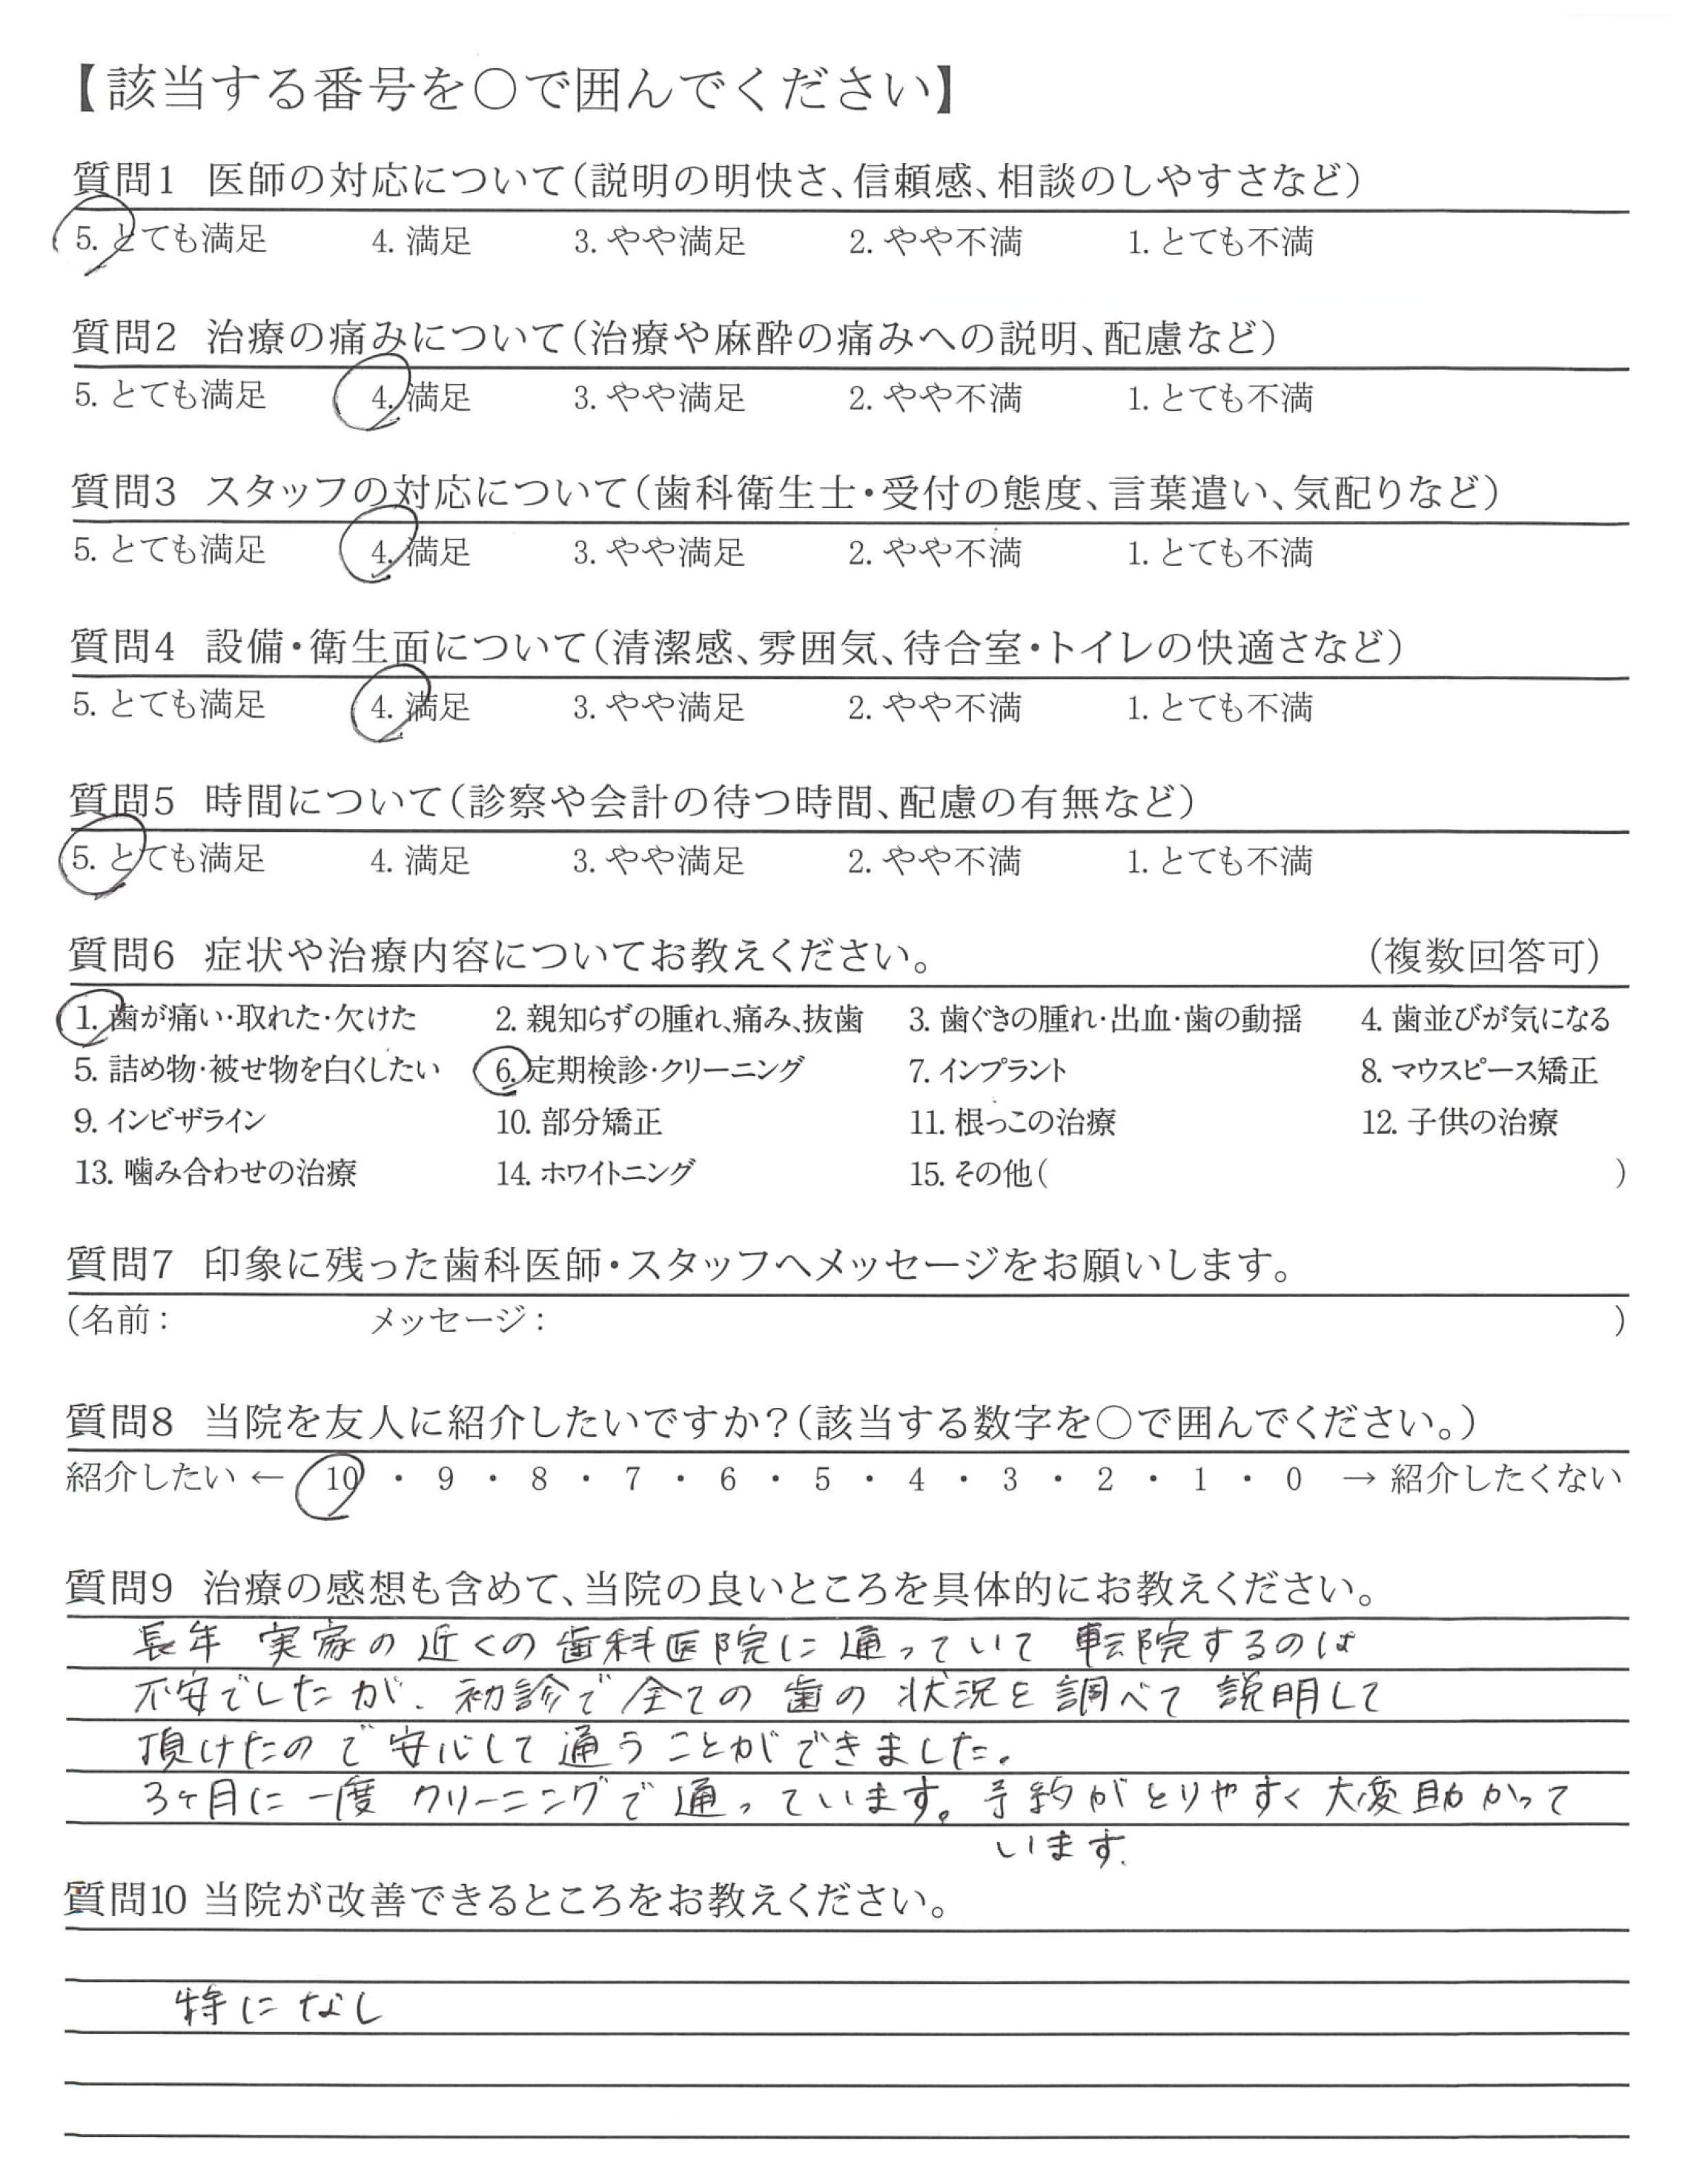 【該当する番号を○で囲んでください】
質問1 医師の対応について(説明の明快さ、信頼感、相談のしやすさなど)
5. とても満足 4. 満足 3. やや満足 2. やや不満 1. とても不満
質問2 治療の痛みについて(治療や麻酔の痛みへの説明、配慮など)
5. とても満足 4. 満足 3. やや満足 2. やや不満 1. とても不満
質問3 スタッフの対応について(歯科衛生士・受付の態度、言葉遣い、気配りなど)
5. とても満足 4. 満足 3. やや満足 2. やや不満 1. とても不満
質問4 設備・衛生面について(清潔感、雰囲気、待合室・トイレの快適さなど)
5. とても満足 4. 満足 3. やや満足 2. やや不満 1. とても不満
質問5 時間について(診察や会計の待つ時間、配慮の有無など)
5. とても満足 4. 満足 3. やや満足 2. やや不満 1. とても不満
質問6 症状や治療内容についてお教えください。 (複数回答可)
1. 歯が痛い・取れた・欠けた 2. 親知らずの腫れ、痛み、抜歯 3. 歯ぐきの腫れ・出血・歯の動揺 4. 歯並びが気になる
5. 詰め物・被せ物を白くしたい 6. 定期検診・クリーニング 7. インプラント 8. マウスピース矯正
9. インビザライン 10. 部分矯正 11. 根っこの治療 12. 子供の治療
13. 噛み合わせの治療 14. ホワイトニング 15. その他( )
質問7 印象に残った歯科医師・スタッフへメッセージをお願いします。
(名前: メッセージ: )
質問8 当院を友人に紹介したいですか?(該当する数字を○で囲んでください。)
紹介したい ← 10 ・ 9 ・ 8 ・ 7 ・ 6 ・ 5 ・ 4 ・ 3 ・ 2 ・ 1 ・ 0 → 紹介したくない
質問9 治療の感想も含めて、当院の良いところを具体的にお教えください。
長年 実家の近くの歯科医院に通っていて 転院するのは
不安でしたが、初診で全ての歯の状況を調べて説明して
頂けたので安心して通うことができました。
3ヶ月に一度クリーニングで通っています。予約がとりやすく大変助かって
います.
質問10 当院が改善できるところをお教えください。
特になし